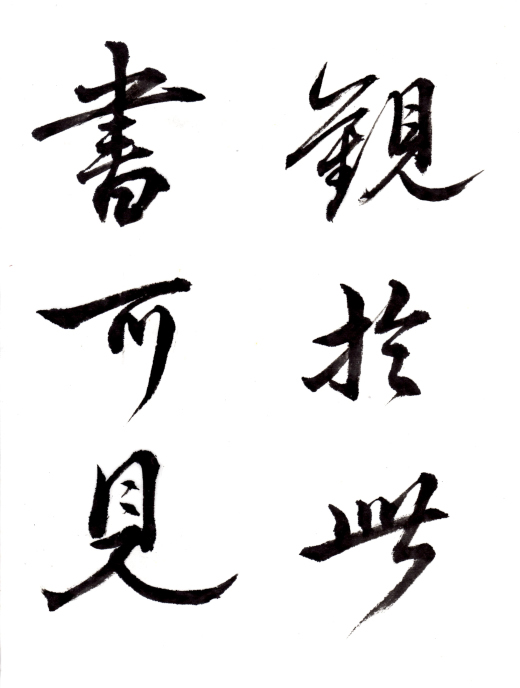 觀於此
書可見